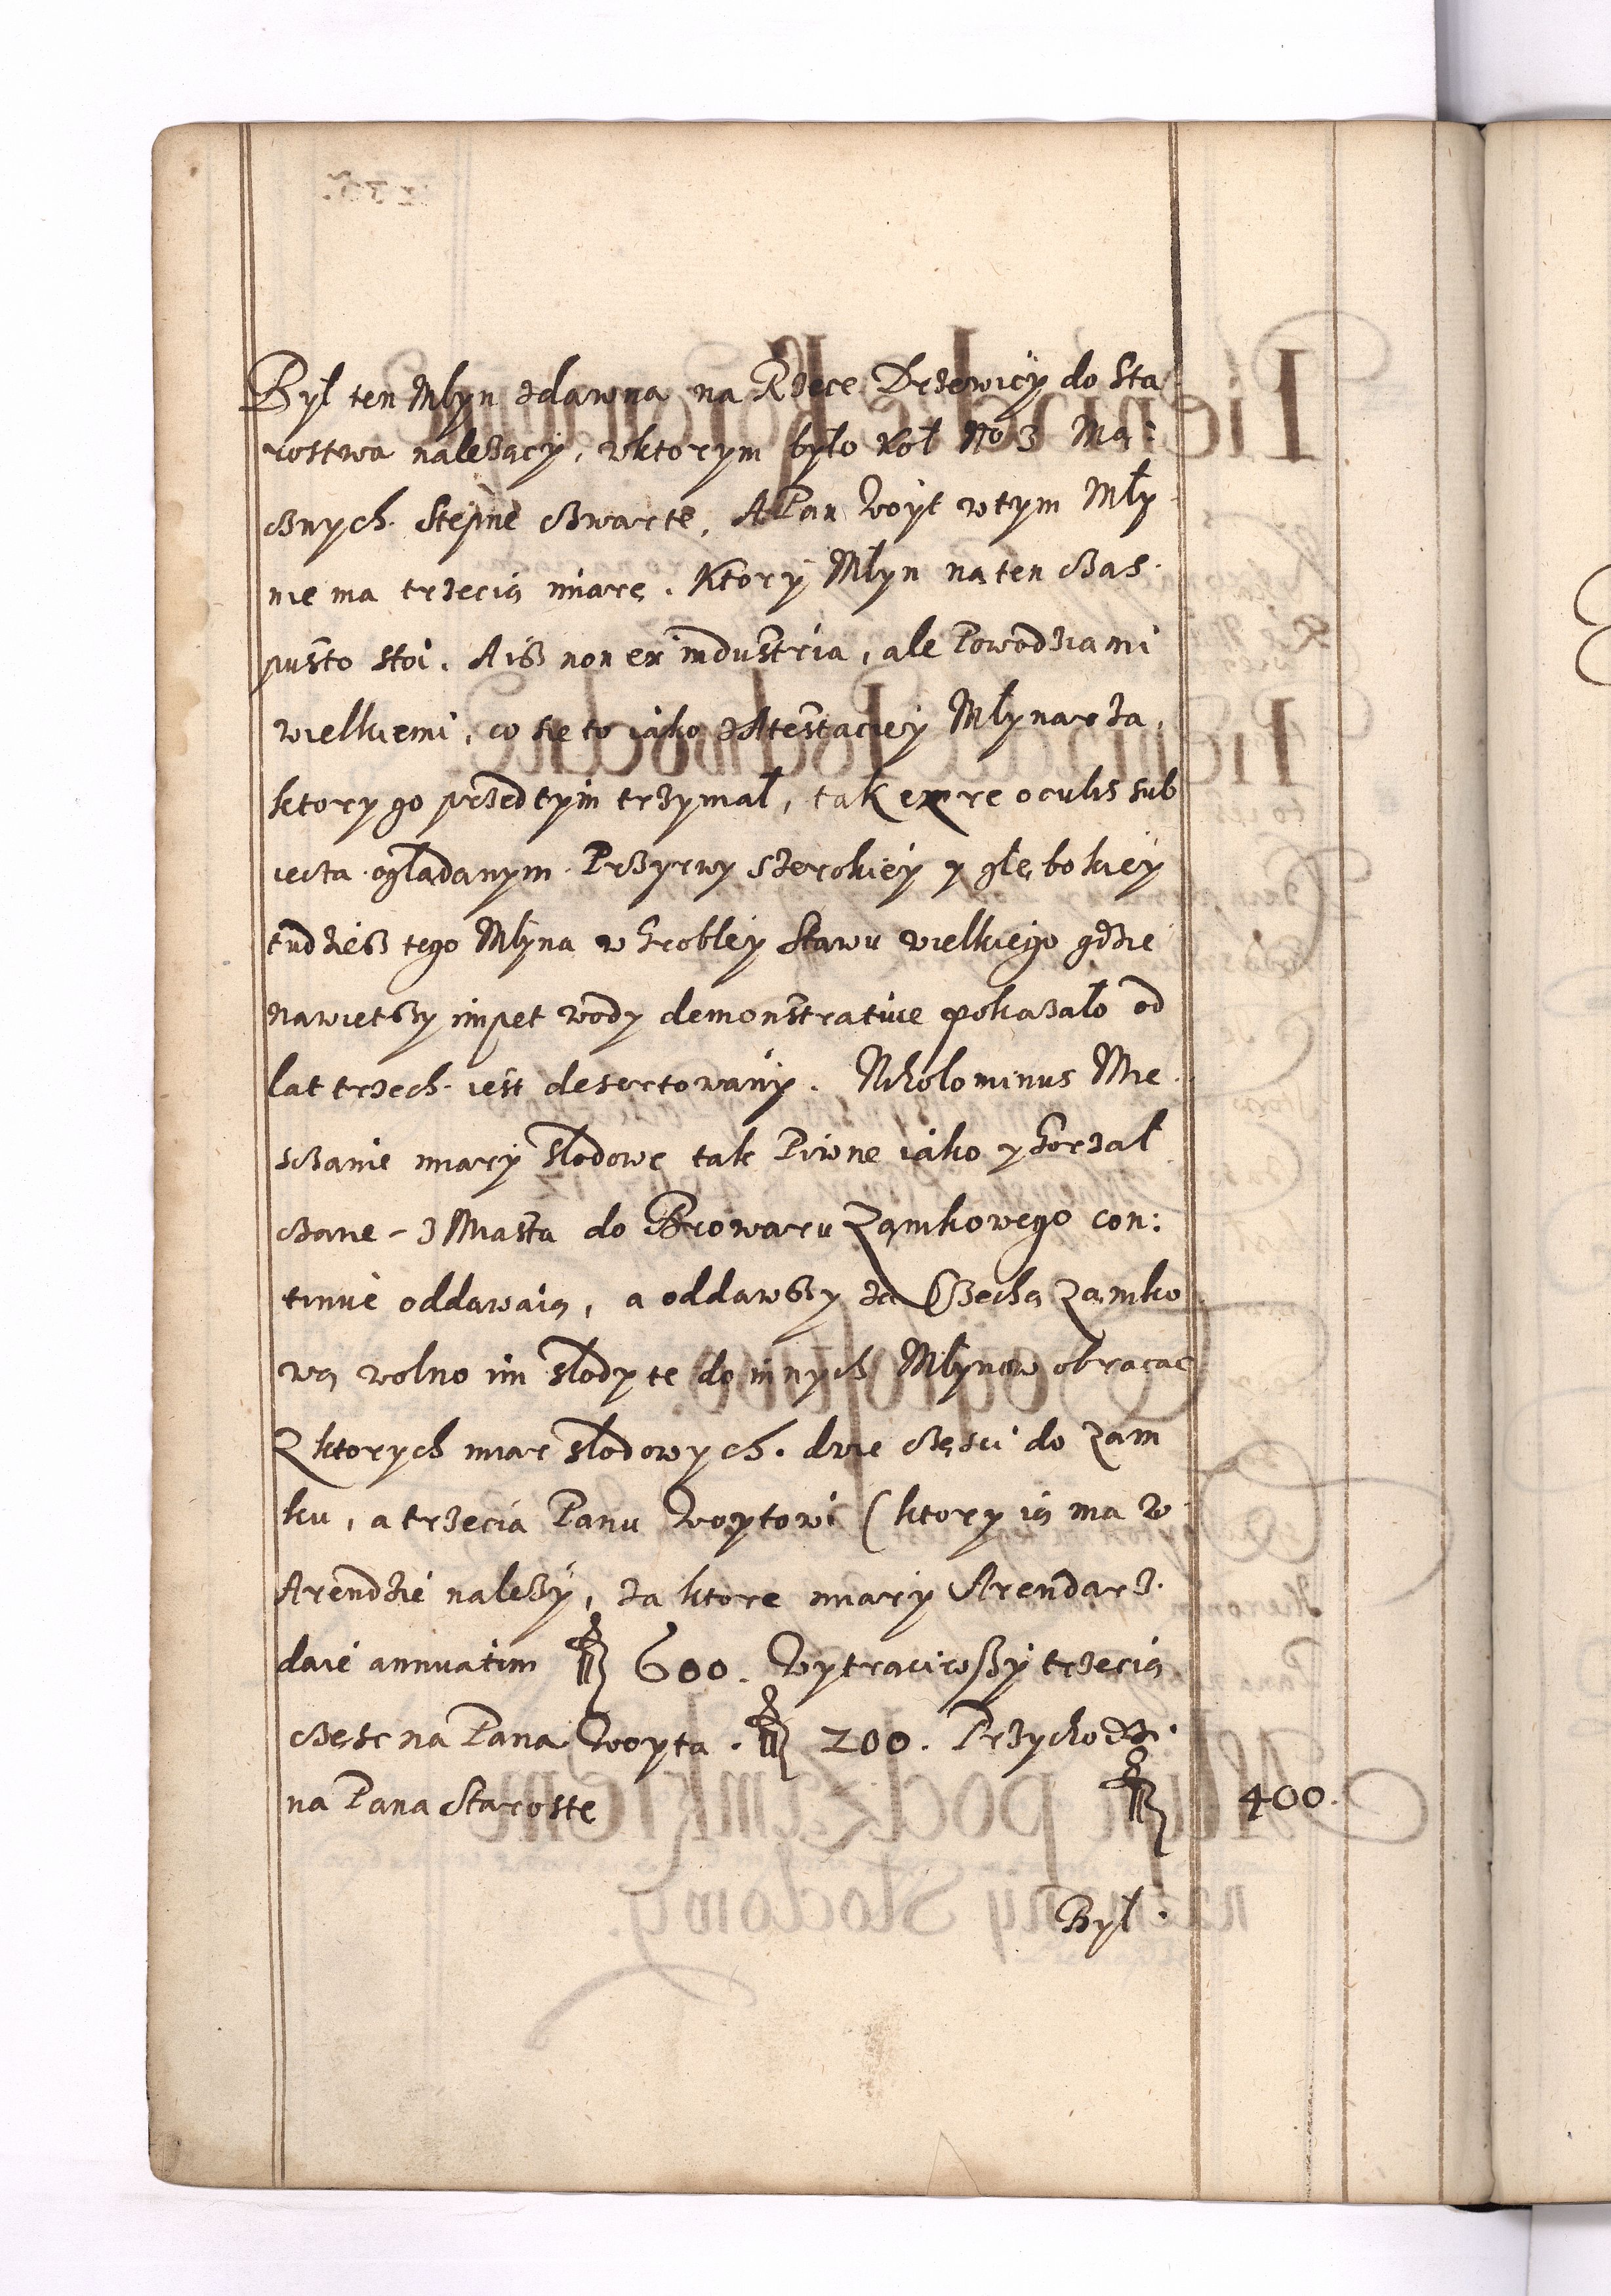 Był ten Młyn zdawna na Rzece Drzewicÿ do Sta
rostwa należącÿ, wktorym było Koł No 3 Mą:
cznych. Stępne czwarte, A Pan Woyt wtym Mły
nie ma trzecią miarę. Ktorÿ Młyn na ten czas
pusto stoi. A isz non ex industria, ale Powodziami
wielkiemi, co się to iako z Atestacieÿ Młynarza,
ktory go przedtÿm trzymał, tak ex re oculis sub
iecta oglądanym Przyrwy szerokieÿ y głębokieÿ
tudziesz tego Młyna w Grobleÿ Stawu wielkiego gdzie
nawiętszy impet wody demonstrative pokazało od
lat trzech iest desertowanÿ. Nihilominus Mie
sczanie miarÿ słodowe tak Piwne iako y Gorzał
czane z Miasta do Browaru Zamkowego con:
tinuè oddawaią, a oddawszy za Czechą Zamko
wą wolno im słody te do innych Młynow obracac
Z ktorych miar słodowych. dwie częsci do Zam
ku, a trzecia Panu Woytowi (ktory ią ma w
Arendzie należÿ, za ktore miarÿ Arendarz
daie annuatim fl 600. Wytrąciwszÿ trzecią
częsc na Pana Woyta. fl 200. Przychodzi
na Pana Starostę fl 400.
Był.